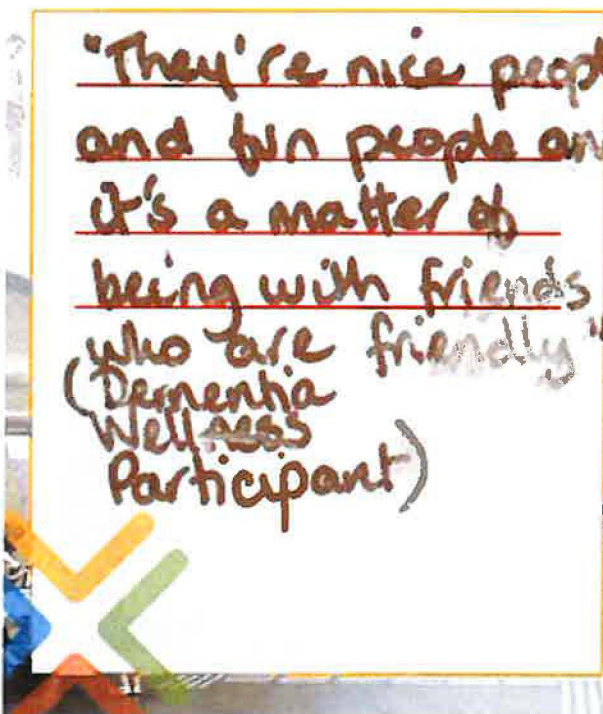 "They're nice peopl
and fun people an
it's a matter of
being with friends
who are friendly"
(Dementia
Wellness
Participant)